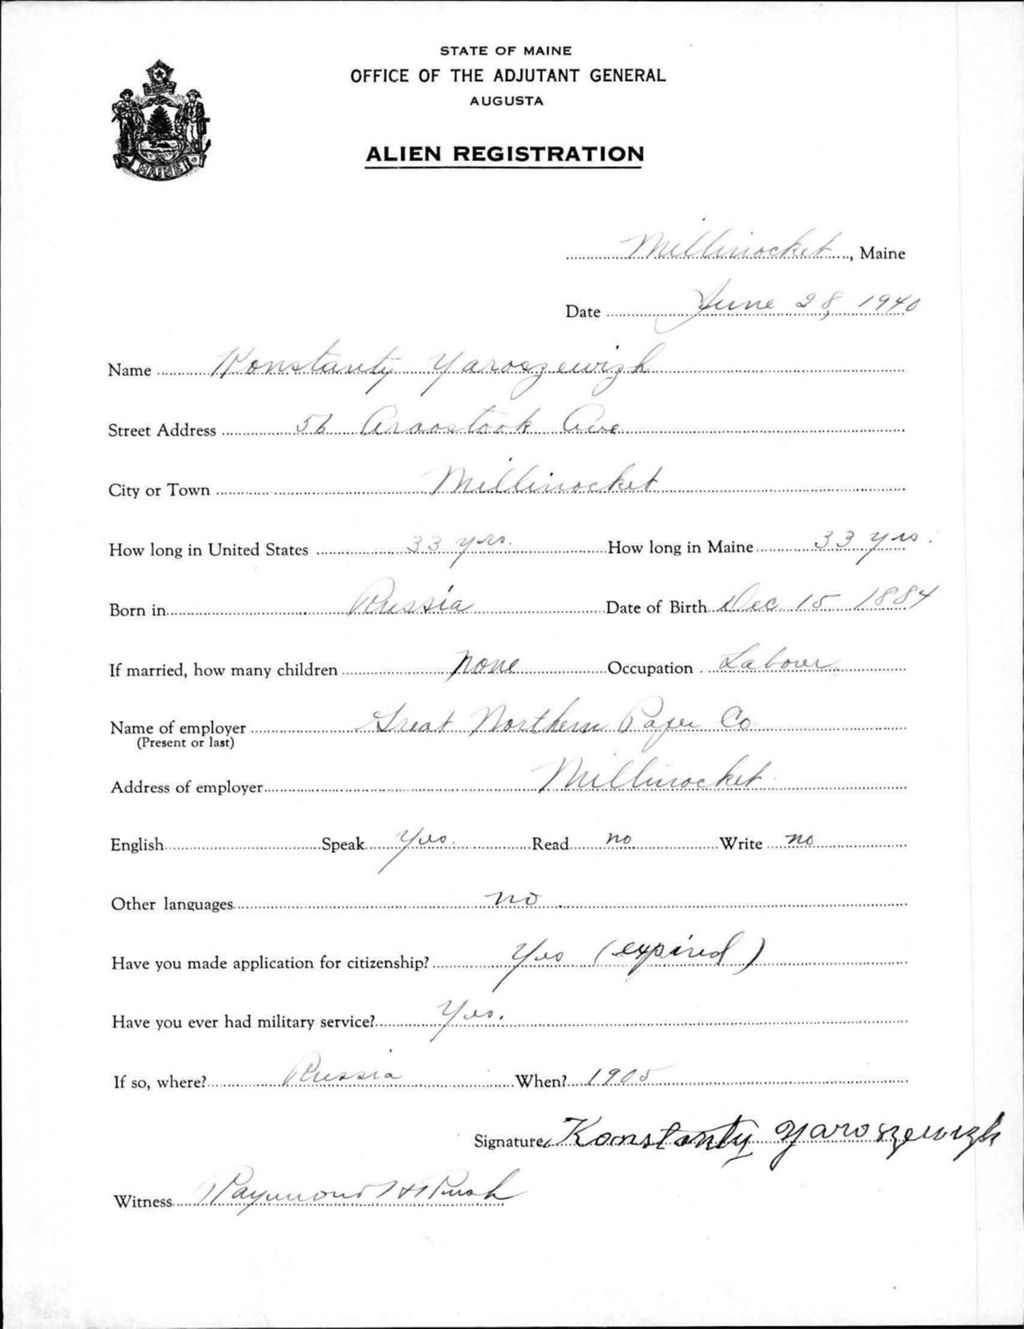 STATE OF MAINE
OFFICE OF THE ADJUTANT GENERAL
AUGUSTA
ALIEN REGISTRATION
MAINE
Millinocket, Maine
Date June 28, 1940
Name Konstanty Yaroszewizh
Street Address 56 Aroostook Ave
City or Town Millinocket
How long in United States 33 yrs. How long in Maine 33 yrs.
Born in Russia Date of Birth Dec 15 1884
If married, how many children none Occupation Labour
Name of employer Great Northern Paper Co
(Present or last)
Address of employer Millinocket
English Speak Yes. Read no Write no
Other languages no.
Have you made application for citizenship? Yes (expired)
Have you ever had military service? Yes.
If so, where? Russia When? 1905
Signature Konstanty Yaroszewizh
Witness Raymond H Rush